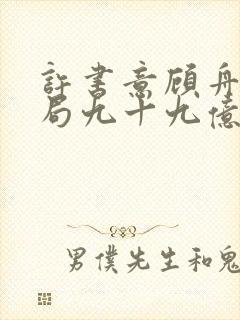 許書意顧舟
局九十九億
男僕先生和鬼